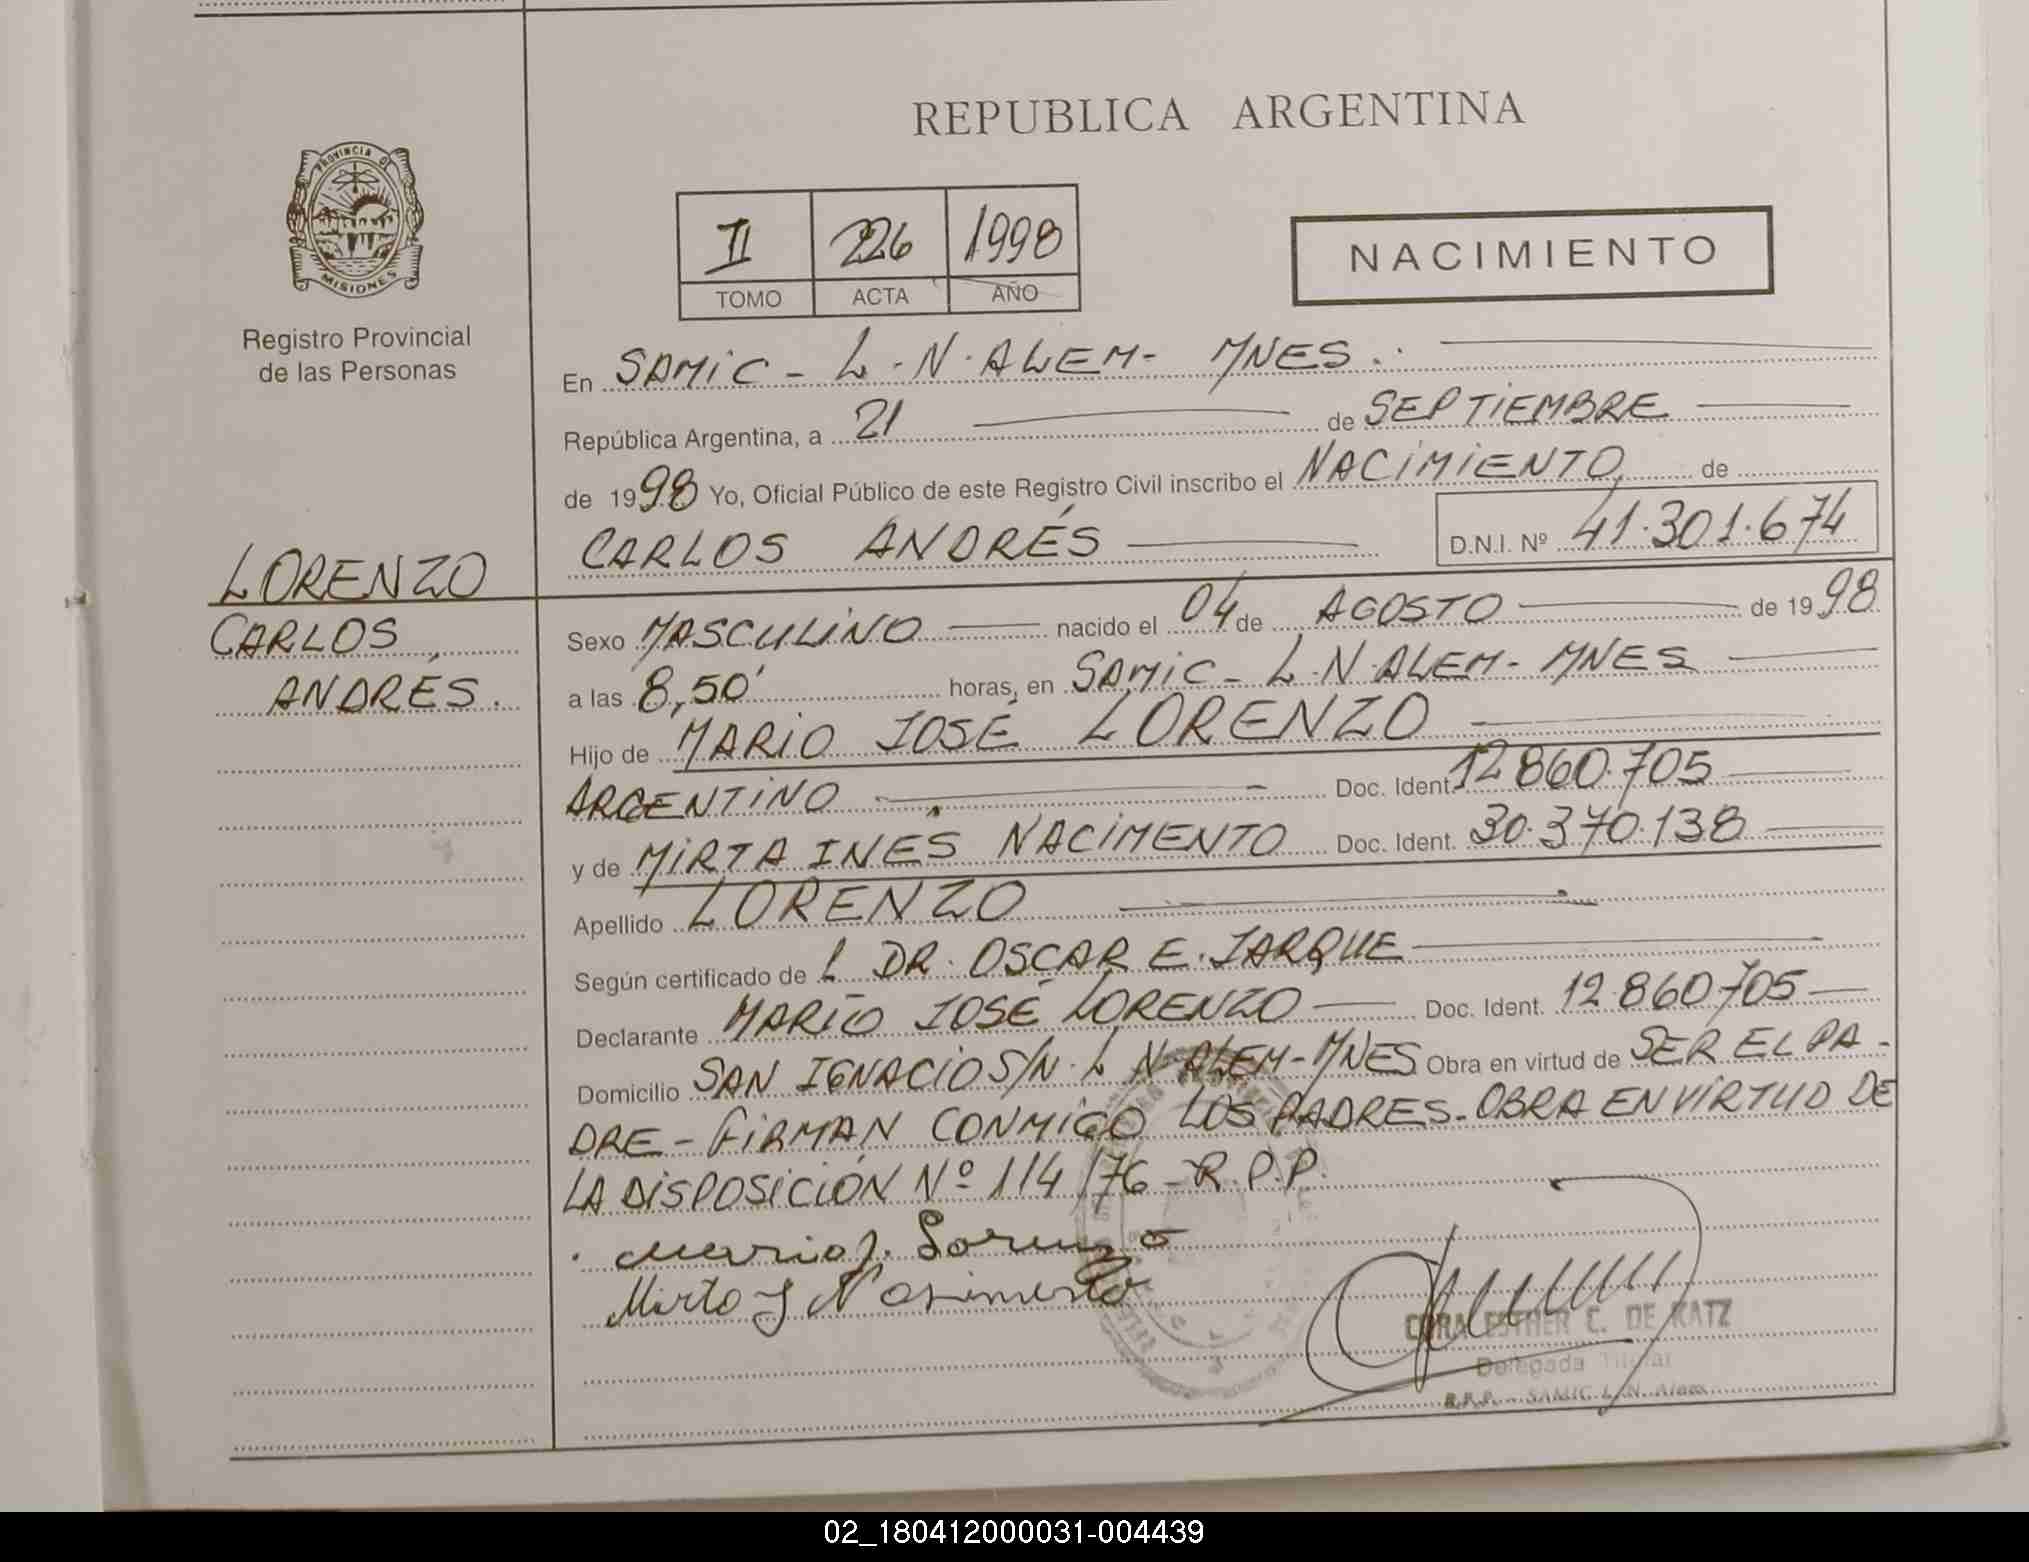 REPUBLICA ARGENTINA
PROVINCIA D
MISIONES
Registro Provincial
de las Personas
II 226 1998
TOMO ACTA AÑO
NACIMIENTO
En SAMIC - L.N. ALEM - MNES.
República Argentina, a 21 de SEPTIEMBRE
de 1998 Yo, Oficial Público de este Registro Civil inscribo el NACIMIENTO de
CARLOS ANDRÉS D.N.I. Nº 41.301.674
LORENZO
CARLOS
ANDRÉS.
Sexo MASCULINO nacido el 04 de AGOSTO de 1998
a las 8,50' horas, en SAMIC - L.N. ALEM - MNES
Hijo de MARIO JOSÉ LORENZO
ARGENTINO Doc. Ident. 12.860.705
y de MIRTA INÉS NACIMENTO Doc. Ident. 30.370.138
Apellido LORENZO
Según certificado de L DR. OSCAR E. JARQUE
Declarante MARIO JOSÉ LORENZO Doc. Ident. 12.860.705
Domicilio SAN IGNACIO S/N. L.N. ALEM - MNES Obra en virtud de SER EL PA-
DRE - FIRMAN CONMIGO LOS PADRES. OBRA EN VIRTUD DE
LA DISPOSICIÓN Nº 114/76 - R.P.P.
Mario J. Lorenzo
Mirta I Nasimento
CORA ESTHER C. DE KATZ
Delegada Titular
R.P.P. - SAMIC L.N. Alem
02_180412000031-004439